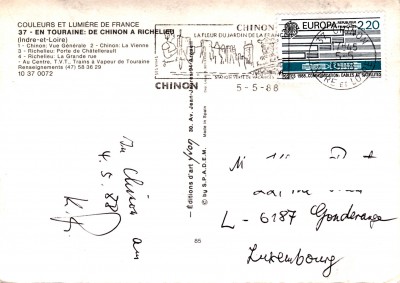 COULEURS ET LUMIÈRE DE FRANCE
37 - EN TOURAINE: DE CHINON A RICHELIEU
(Indre-et-Loire)
1 - Chinon: Vue Générale 2 - Chinon: La Vienne
3 - Richelieu: Porte de Châtellerault
4 - Richelieu: La Grande rue
- Au Centre, T.V.T., Trains à Vapeur de Touraine
Renseignements (47) 58 36 29
10 37 0072
CHINON
LA FLEUR DU JARDIN DE LA FRANCE
CHINON
5-5-88
EUROPA
2,20
- Éditions d'art
30, Av. Jean
© by S.P.A.D.E.M.
Made in
85
In Chinon am
4.5.88
L - 6187 Gonderange
Luxembourg